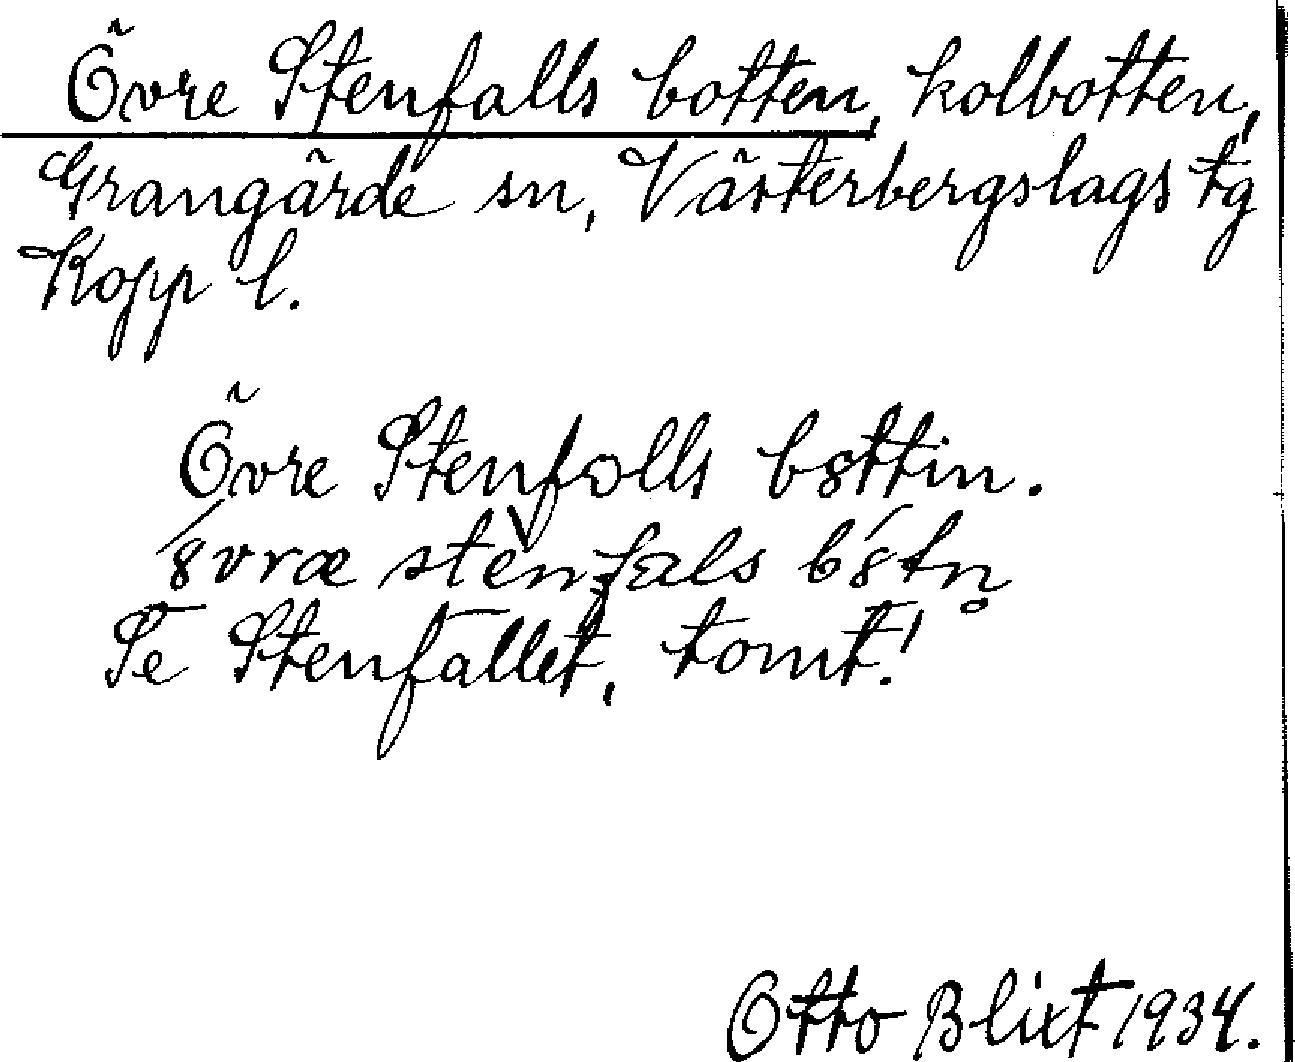 Övre Stenfalls botten, kolbotten,
Grangärde sn, Västerbergslags tg
Kopp l.
Övre Stenfɔlls b8ttin.
8vræ stenfals b8tn̥
Se Stenfallet, tomt!
Otto Blixt 1934.